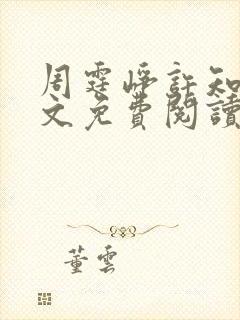 周霆崢許知
文免費閱讀
董雲